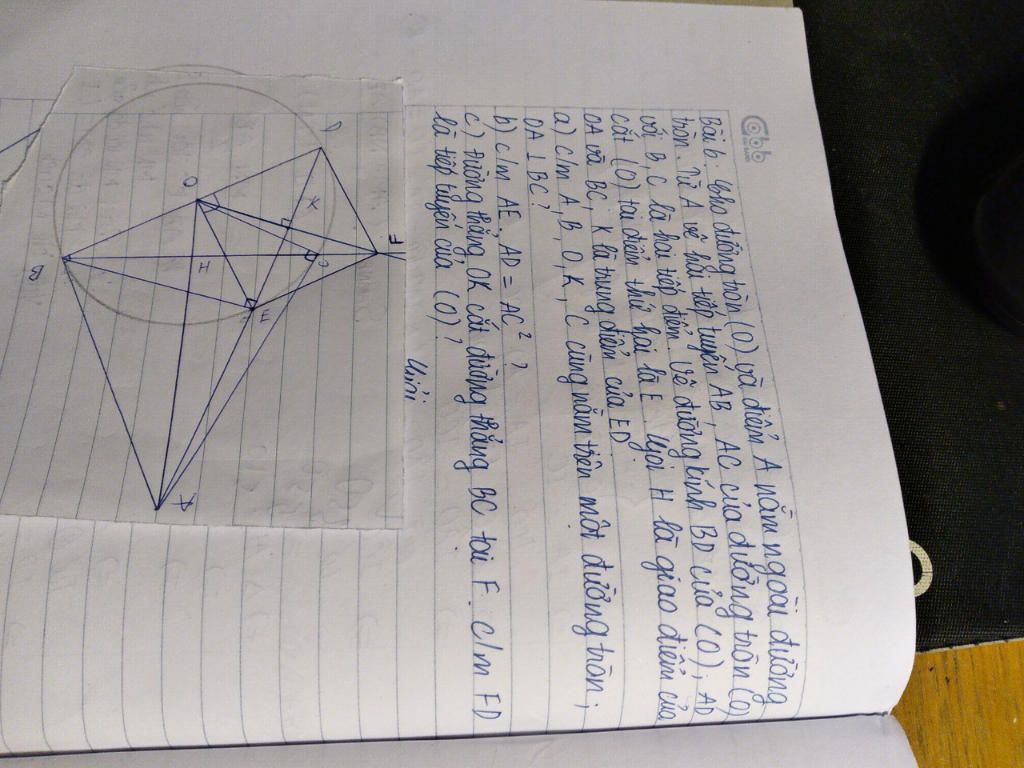 Cbb
Bài 6. Cho đường tròn (O) và điểm A nằm ngoài đường
tròn. Từ A vẽ hai tiếp tuyến AB, AC của đường tròn (O)
với B, C là hai tiếp điểm. Vẽ đường kính BD của (O); AD
cắt (O) tại điểm thứ hai là E. Gọi H là giao điểm của
OA và BC, K là trung điểm của ED
a) c/m A, B, O, K, C cùng nằm trên một đường tròn;
OA ⊥ BC?
b) c/m AE. AD = AC² ?
c) Đường thẳng OK cắt đường thẳng BC tại F. c/m FD
là tiếp tuyến của (O)?
Giải
F
D
K
C
O
H
E
B
A